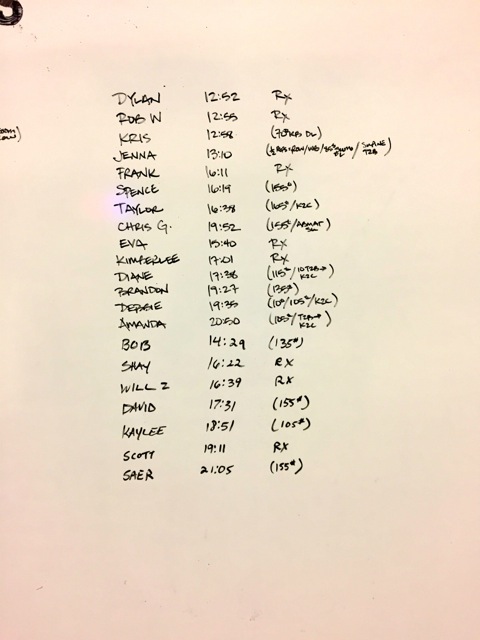 DYLAN 12:52 RX
ROB W 12:55 RX
KRIS 12:58
JENNA 13:10
FRANK 16:11 RX
SPENCE 16:19 (155#)
TAYLOR 16:38 (165#/K2C)
CHRIS G. 19:52
EVA 15:40 RX
KIMBERLEE 17:01 RX
DIANE 17:38
BRANDON 19:27 (135#)
DEBBIE 19:35
AMANDA 20:50
BOB 14:29 (135#)
SHAY 16:22 RX
WILL Z 16:39 RX
DAVID 17:31 (155#)
KAYLEE 18:51 (105#)
SCOTT 19:11 RX
SAER 21:05 (155#)